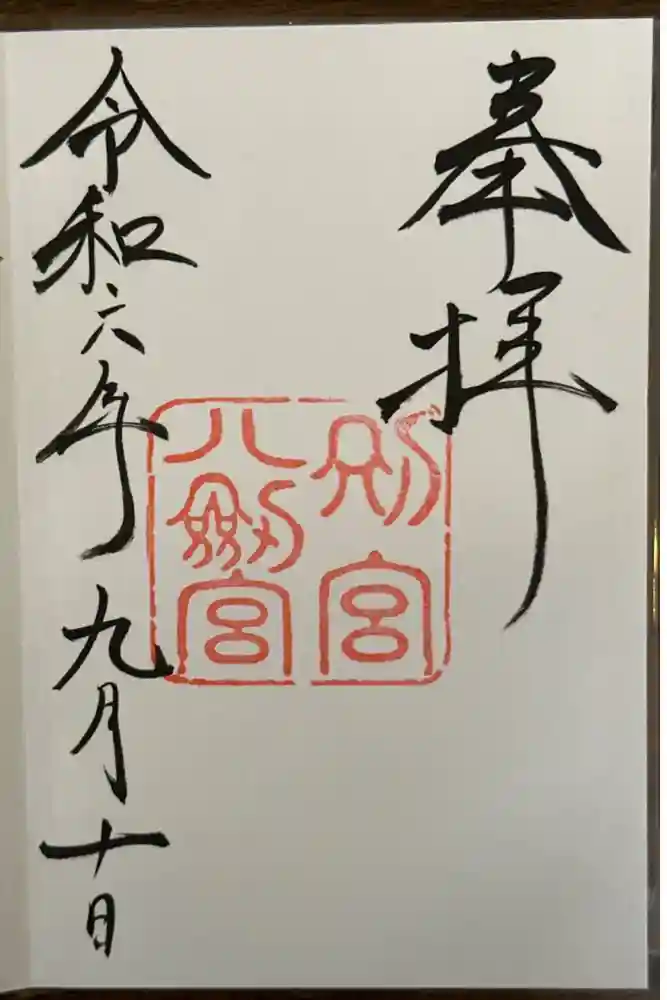 奉拝
別宮
八剱宮
令和六年九月十日